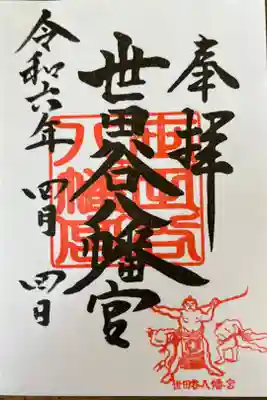 奉拝
世田谷八幡宮
令和六年 四月 四日
世田谷
八幡宮
世田谷八幡宮